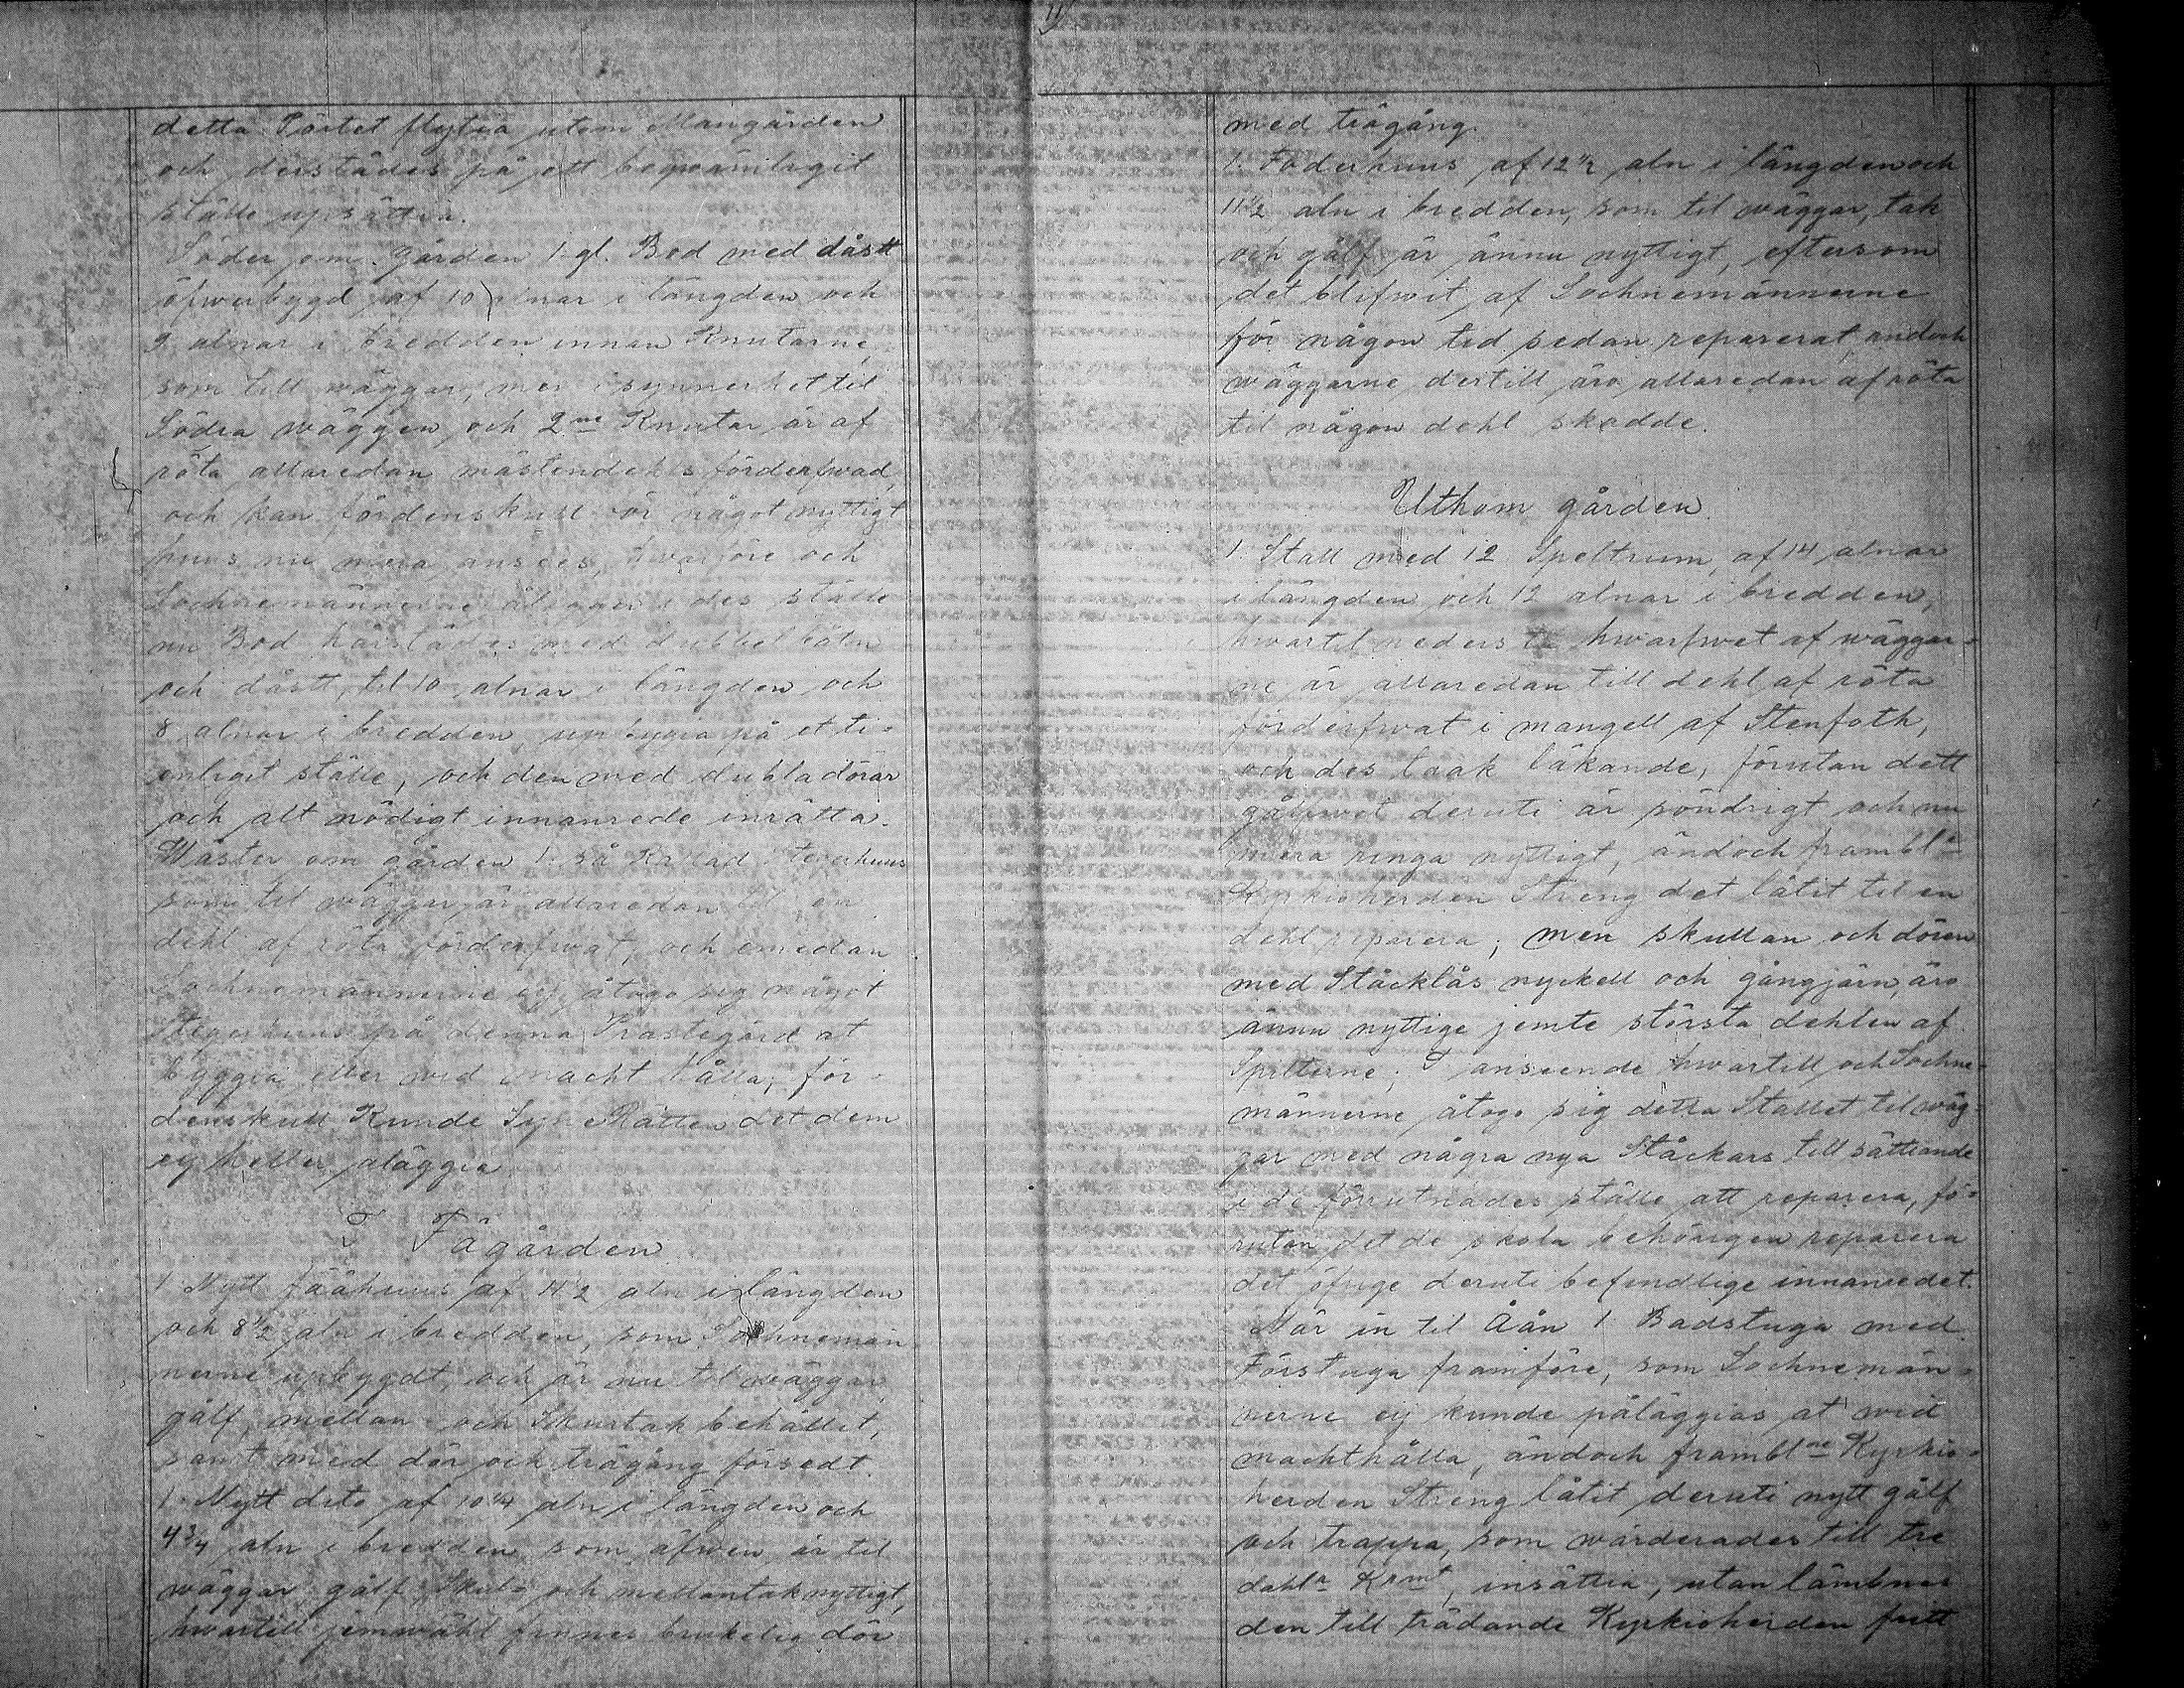 detta Pörtet flytia utom Mangården
och derstädes på ett beqwämligit
ställe upsättia.
Söder om gården 1 gl. Bod med dåstt
öfwerbygd af 10 alnar i längden och
9 alnar i bredden innan Knutarne,
som till wäggar, mer i synnerhet til
Södra wäggen och 2ne Knutar är af
röta allaredan mästendehls förderfwad,
och kan fördenskull för något nyttigt
huus nu mera ansees, hwarföre och
Sochnemännerne i des ställe
nu Bod härstädes med dubbel
och dåstt, til 10 alnar i längden och
8 alnar i bredden, up bygia på et ti-
enligit ställe, och den med dubla dörar
och alt nödigt innanrede inrätta.
Wäster om gården 1 så Kallad Stegerhuus
som til wäggar är allaredan til en
dehl af röta förderfwat, och emedan
Sochnemännerne ey åtogo sig något
Stegerhuus på denna Prästegård at
byggia eller wid macht hålla; för-
denskull Kunde Syne Rätten det dem
ey heller aläggia.
I Fägården
1 Nytt fäähuus af 11 1/2 aln i längden
och 8 1/2 aln i bredden, som Sochnemän
nerne upbygdt, och är nu til wäggar
gålf, mellan- och Skurtak behållit,
samt med dör och trägång försedt.
1. Nytt dito af 10 1/4 aln i längden och
4 3/4 aln i bredden som äfwen är til
wäggar gålf, Skul- och mellantak nyttigt,
hwartill jemwähl finnes brukelig dör
med trägång.
1. Foderhuus af 12 1/2 aln i längden och
11 1/2 aln i bredden, som til wäggar, tak
och gålf är ännu nyttigt, eftersom
det blifwit af Sochnemännerne
för någon tid sedan reparerat, andoch
wäggarne dertill äro allaredan af röta
til någon dehl skadde.
Uthom gården
1. Stall med 12 Speltrum, af 14 alnar
i längden och 12 alnar i bredden,
hwartil nedersta hwarfwet af wäggar-
ne är allaredan till dehl af röta
förderfwat i mangell af Stenfoth,
och des taak läkande, förutan dett
gålfwet deruti är söndrigt och nu
mera ringa nyttigt, ändoch frambl.ne
Kyrkioherden Streng det låtit til en
dehl reparera; men skullan och dören
med Ståcklås nyckell och gångjärn, äro
ännu nyttige jemte största dehlen af
Spilterne; I anseende hwartill och Sochne-
männerne åtogo sig detta Stallet til wäg-
gar med några nya Ståckars till sättiande
i de förrutnades ställe att reparera, fö-
rutan det de skola behörigen reparera
det öfrige deruti befindlige innanredet.
När in til Åån 1 Badstuga med
Förstuga framföre, som Sochnemän-
nerne ey kunde påläggias at wid
macht hålla, ändoch frambl.ne Kyrkio-
herden Streng låtit deruti nytt gålf
och trappa, som wärderades till tre
dahlr Krmt, insättia, utan lämbnas
den till trädande Kyrkioherden fritt